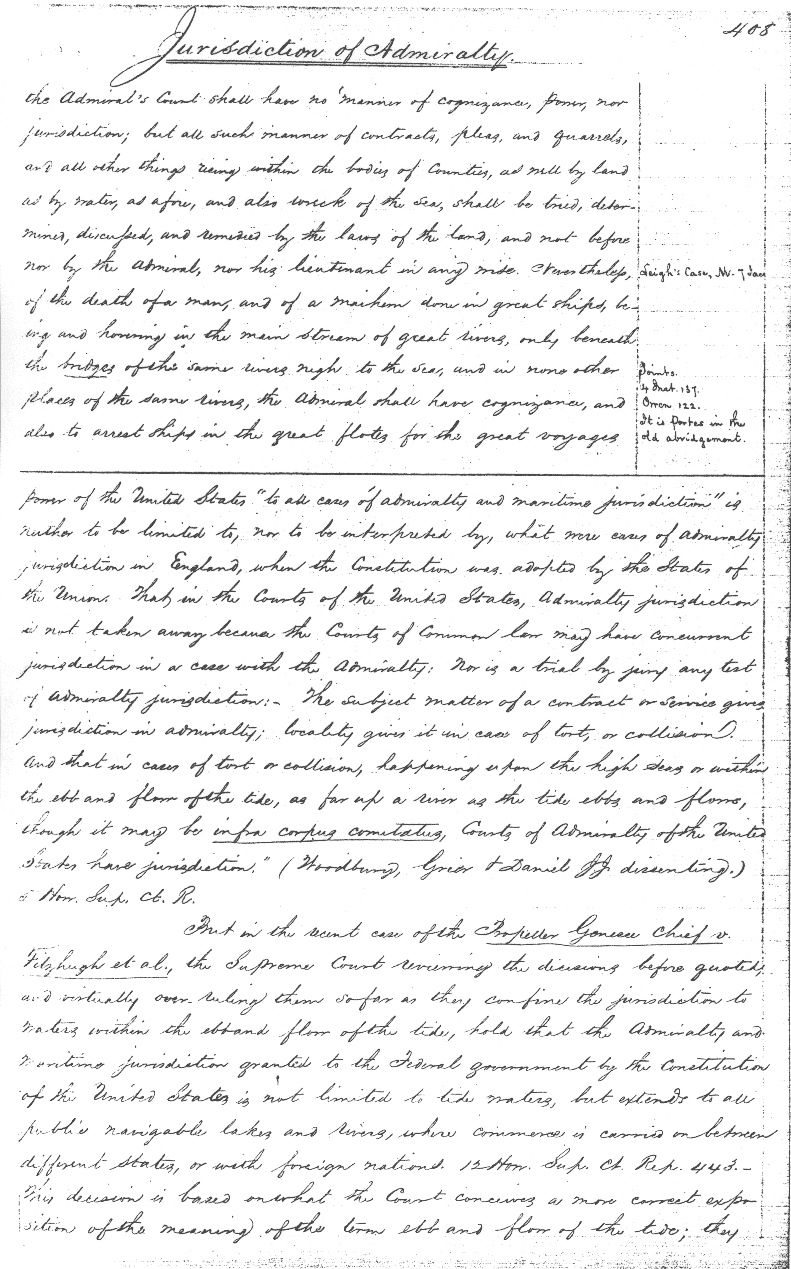 408
Jurisdiction of Admiralty.
the Admiral's Court shall have no manner of cognizance, power, nor
jurisdiction; but all such manner of contracts, pleas, and quarrels,
and all other things rising within the bodies of Counties, as well by land
as by water, as afore, and also wreck of the sea, shall be tried, deter-
mined, discussed, and remedied by the laws of the land, and not before
nor by the Admiral, nor his lieutenant in any wise. Nevertheless,
of the death of a man, and of a maihem done in great ships, be-
ing and hovering in the main stream of great rivers, only beneath
the bridges of the same rivers nigh to the sea, and in none other
places of the same rivers, the Admiral shall have cognizance, and
also to arrest ships in the great flotes for the great voyages
Leigh's Case, M. 7 Jac
Points.
4 Inst. 137.
Owen 122.
It is Portes in the
old abridgement.
power of the United States "to all cases of admiralty and maritime jurisdiction" is
neither to be limited to, nor to be interpreted by, what were cases of admiralty
jurisdiction in England, when the Constitution was adopted by the States of
the Union. That, in the Courts of the United States, Admiralty jurisdiction
is not taken away because the Courts of Common law may have concurrent
jurisdiction in a case with the Admiralty: Nor is a trial by jury any test
of Admiralty jurisdiction:- The subject matter of a contract or service gives
jurisdiction in admiralty; locality gives it in case of tort, or collision.
And that in cases of tort or collision, happening upon the high seas or within
the ebb and flow of the tide, as far up a river as the tide ebbs and flows,
though it may be infra corpus comitatus, Courts of Admiralty of the United
States have jurisdiction." (Woodbury, Grier & Daniel JJ. dissenting.)
5 How. Sup. Ct. R.
But in the recent case of the Propeller Genesee Chief v.
Fitzhugh et al., the Supreme Court reviewing the decisions before quoted,
and virtually over-ruling them so far as they confine the jurisdiction to
waters within the ebb and flow of the tide, hold that the Admiralty and
maritime jurisdiction granted to the Federal government by the Constitution
of the United States is not limited to tide waters, but extends to all
public navigable lakes and rivers, where commerce is carried on between
different States, or with foreign nations. 12 How. Sup. Ct. Rep. 443.-
This decision is based on what the Court conceives a more correct expo
sition of the meaning of the term ebb and flow of the tide; they